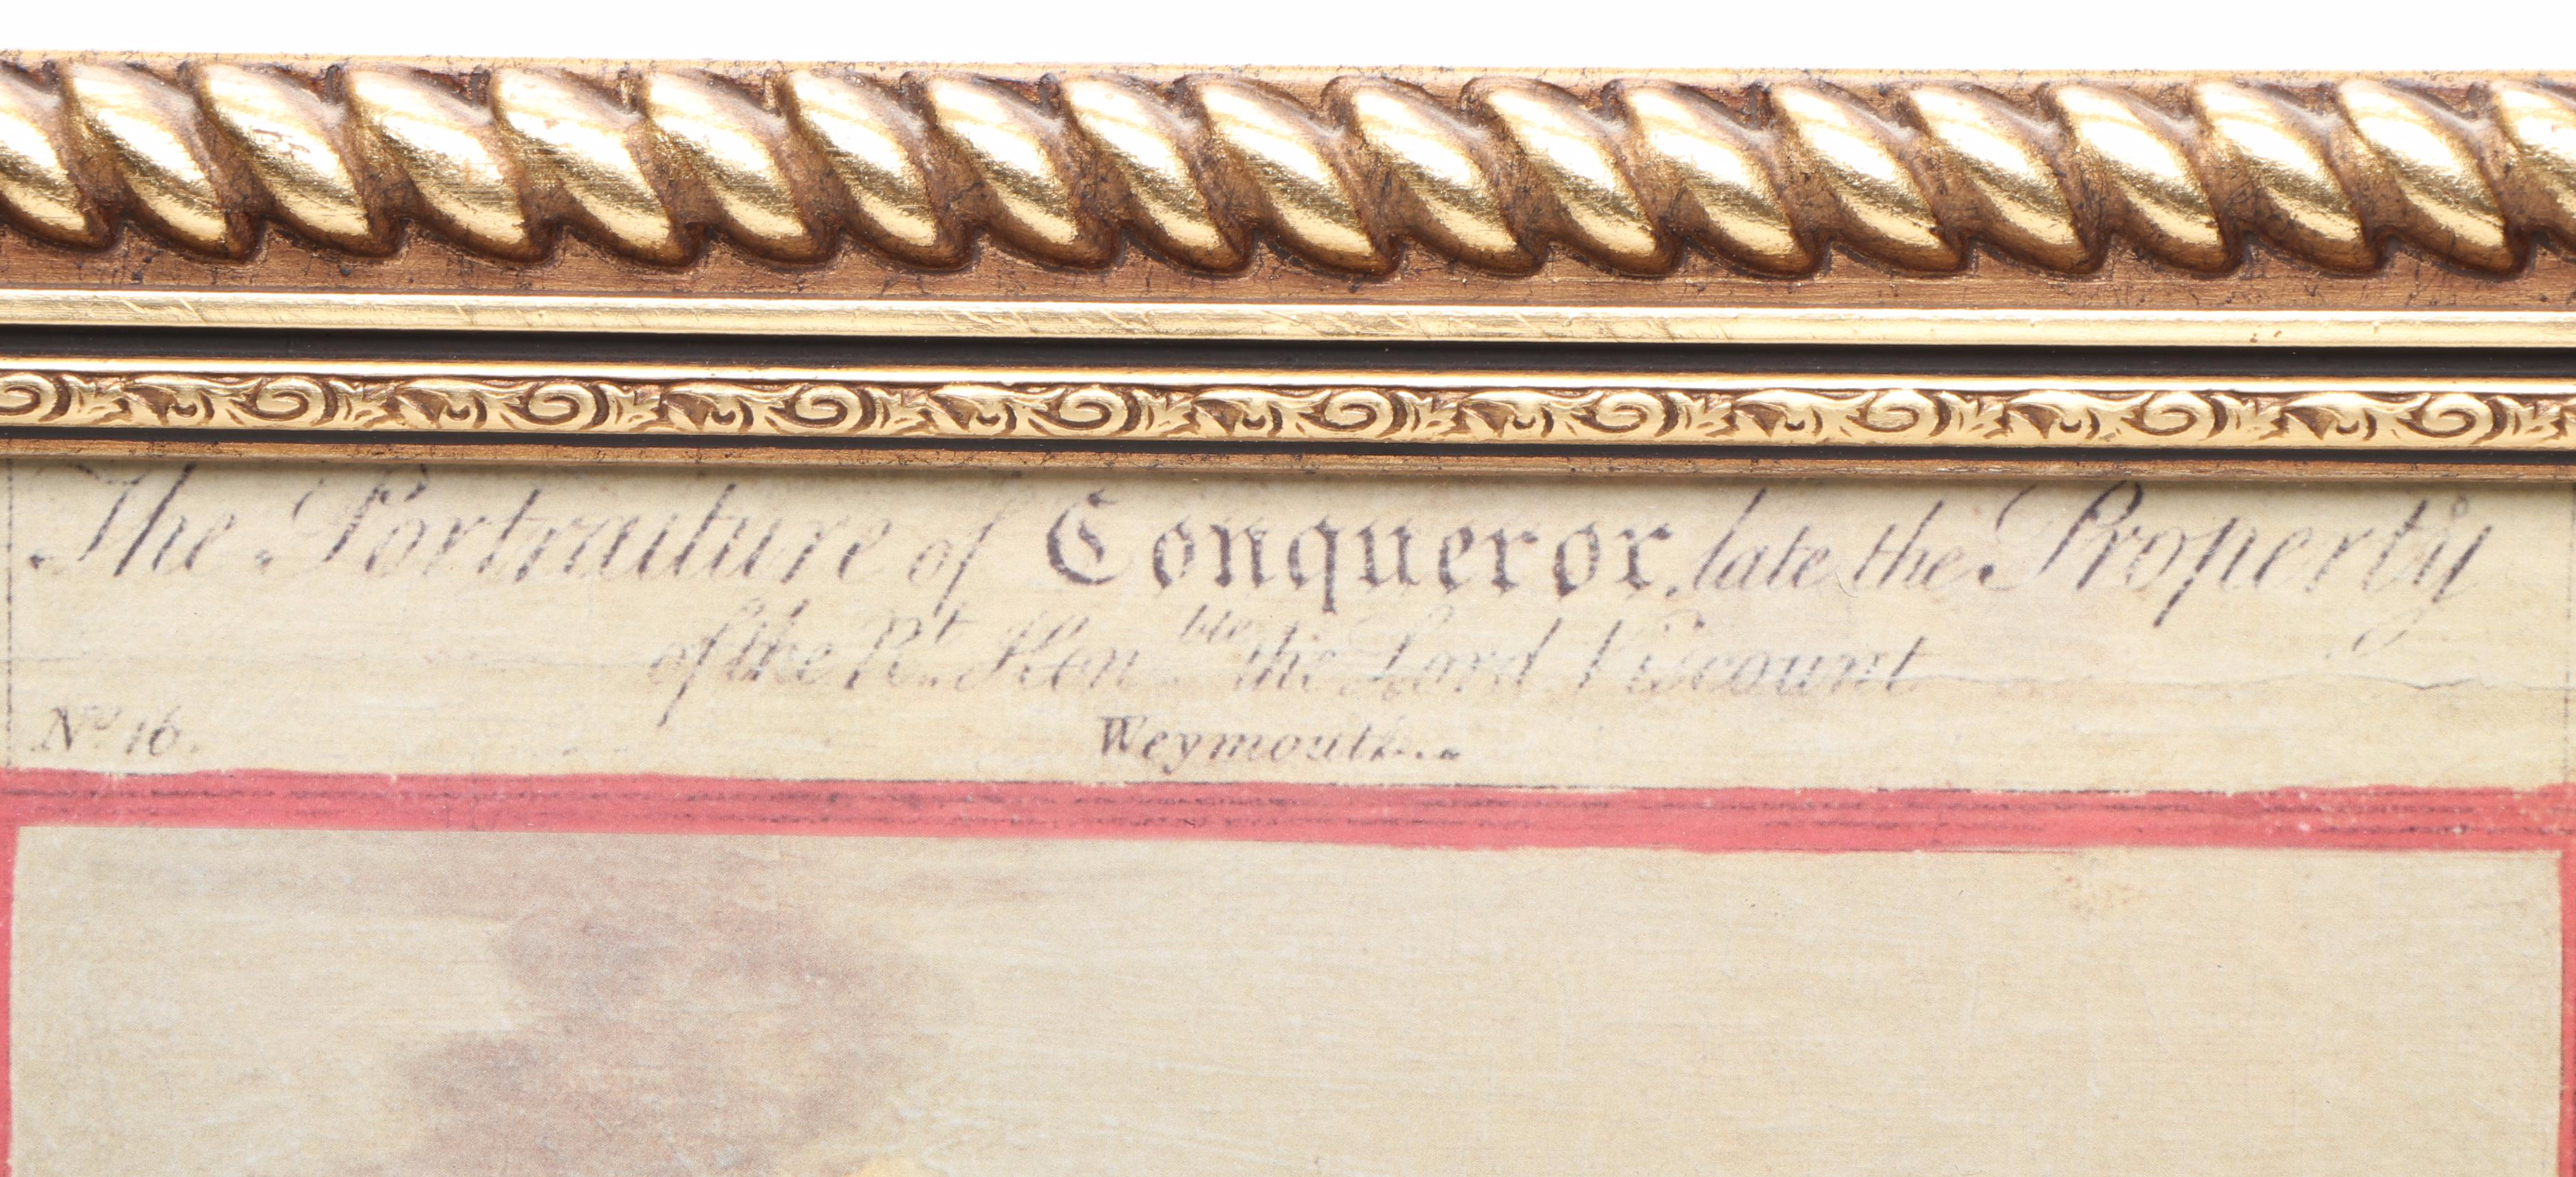 The Portraiture of Conqueror, late the Property
of the Rt. Honble. the Lord Viscount
No. 16.
Weymouth...